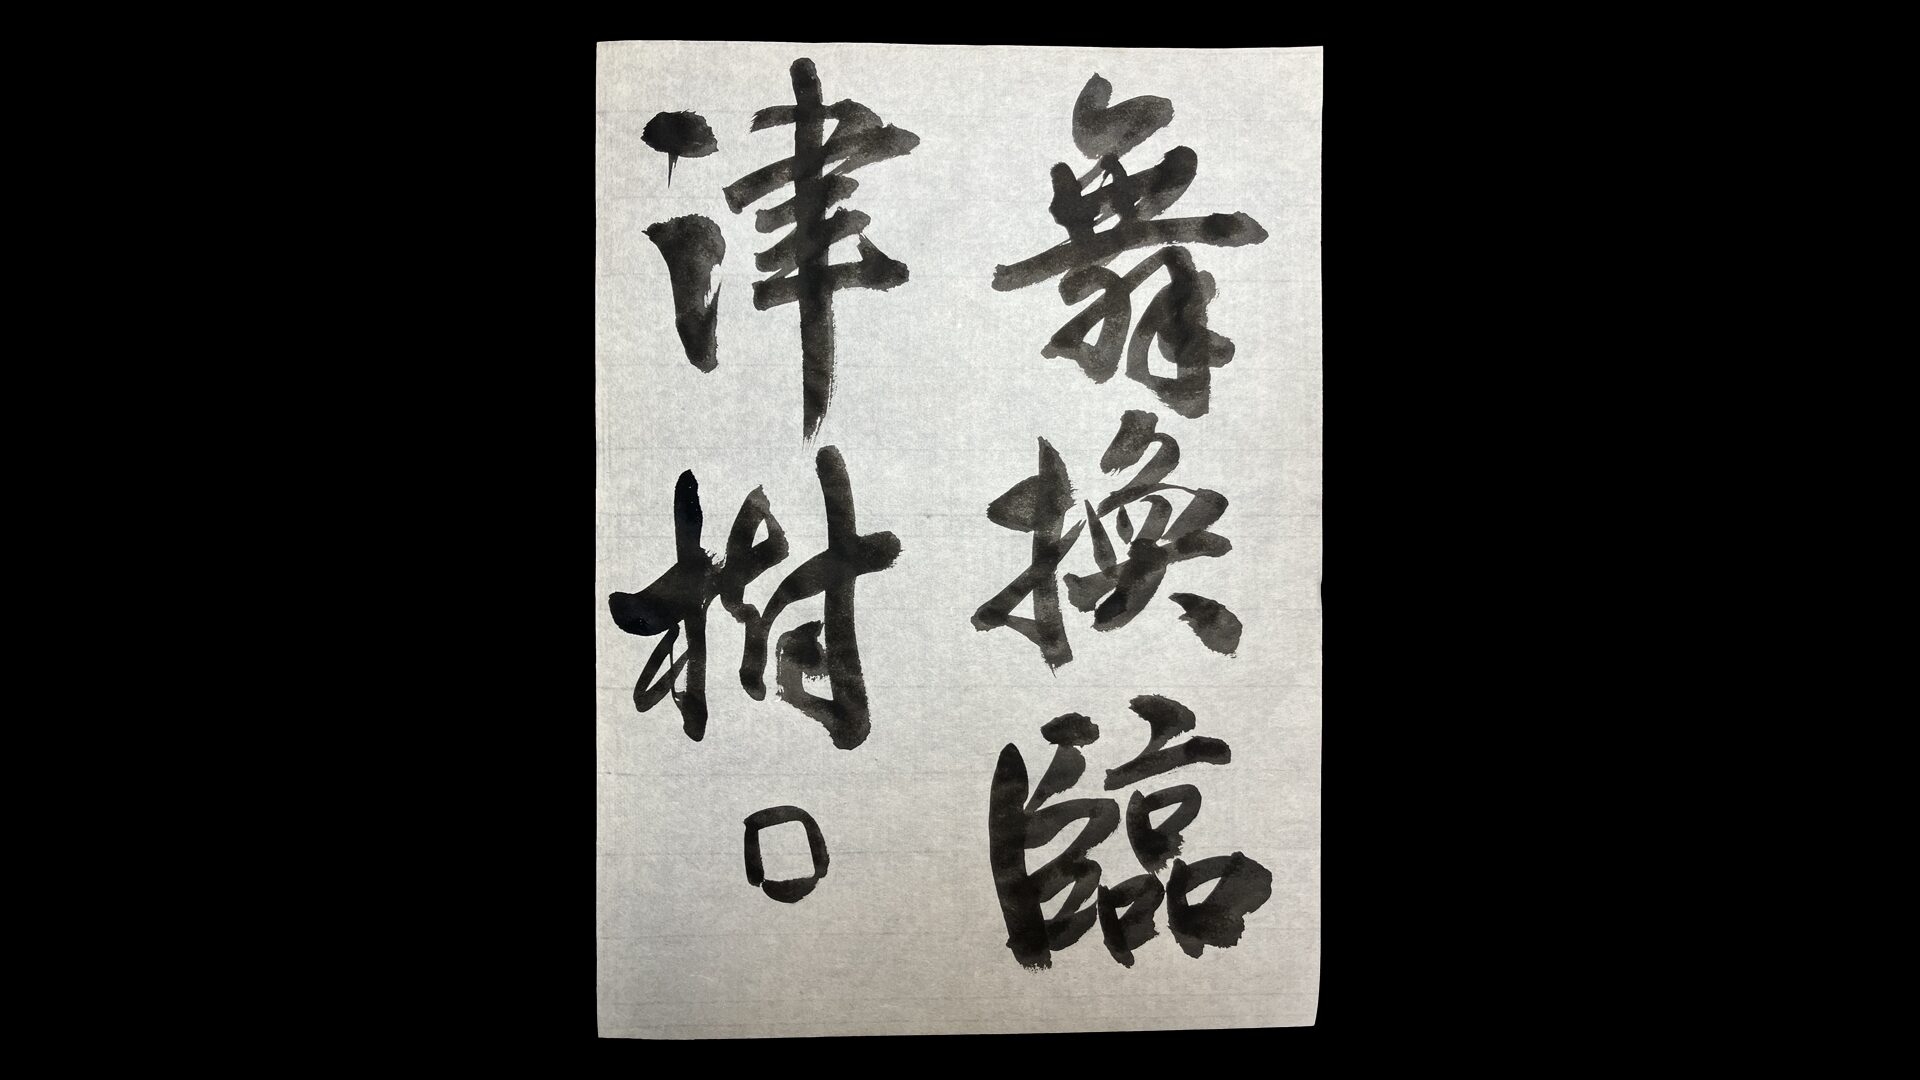 舞換臨
津樹□